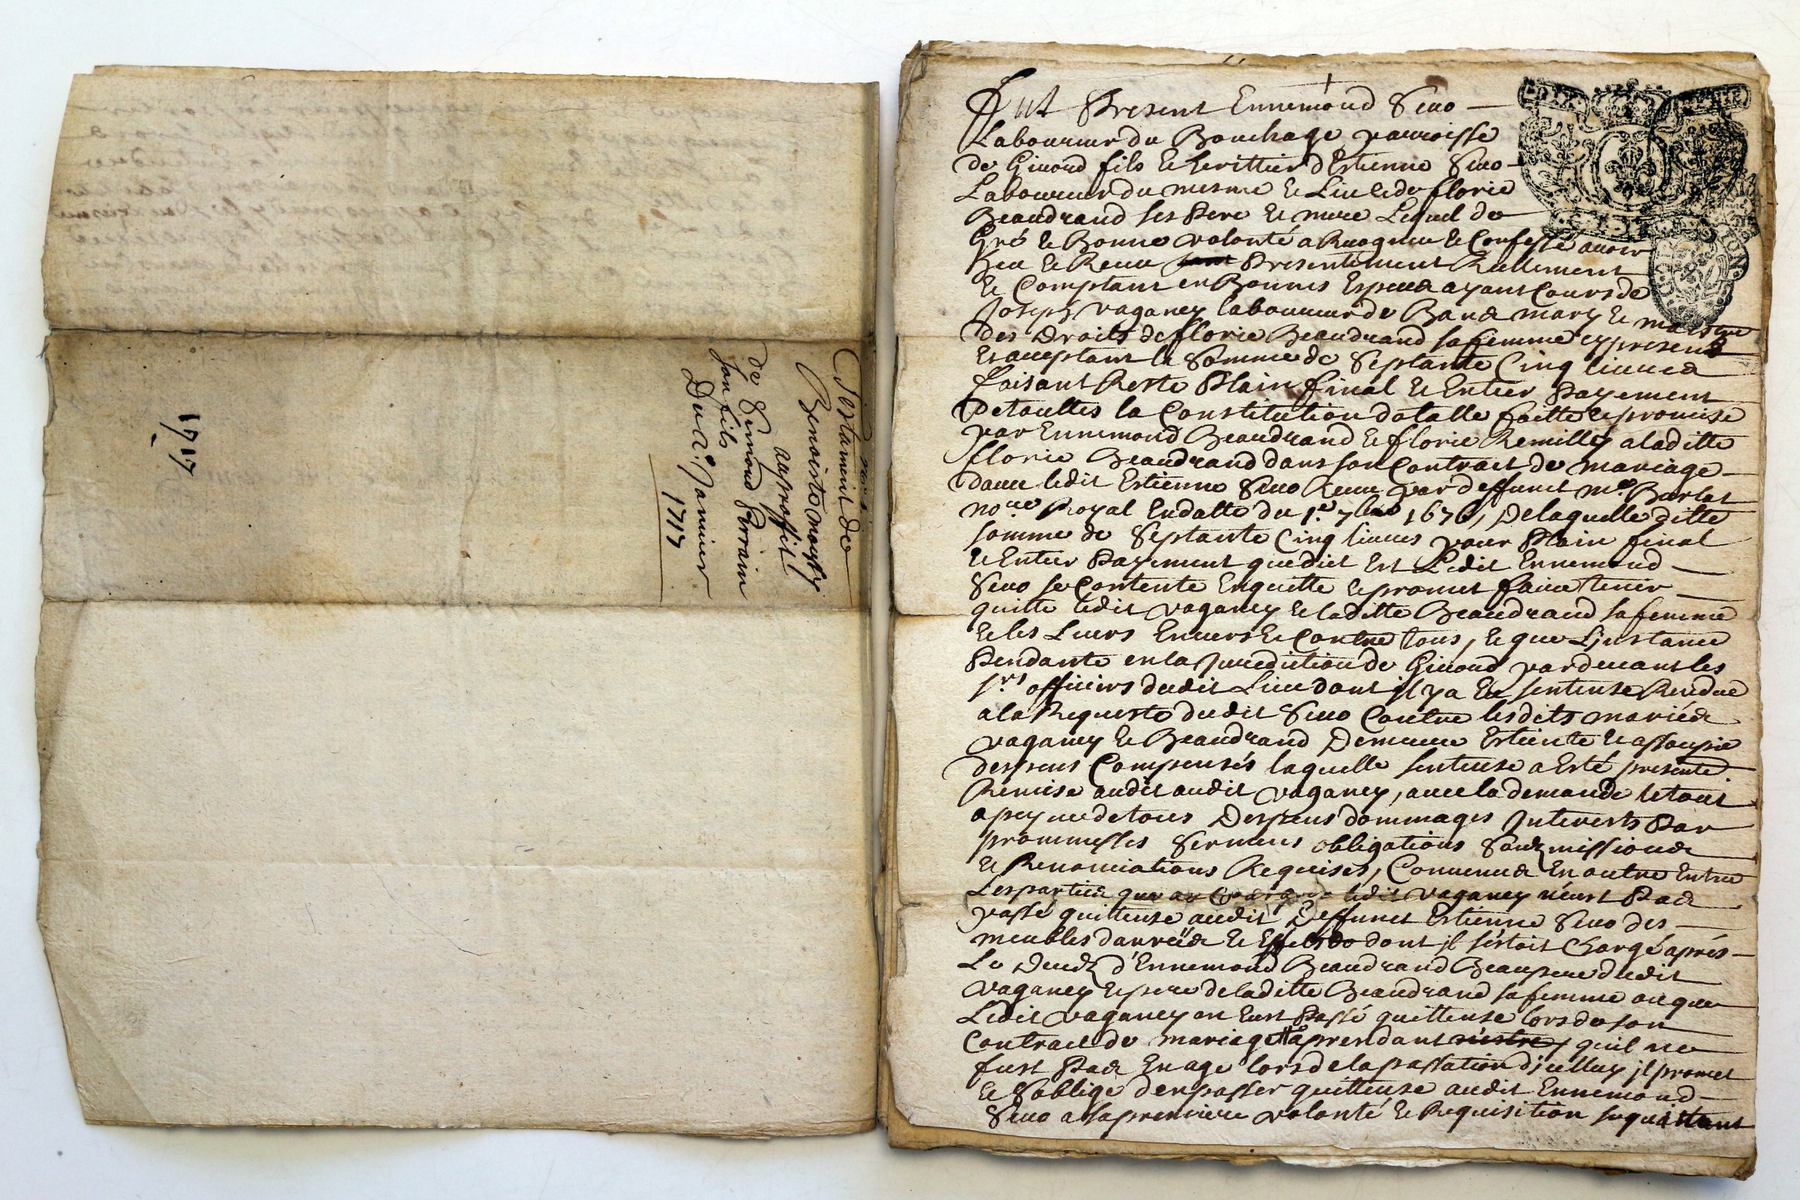 Testament de
Benoiste
au proffit
de Simond Perrain
son fils
Du 2e Janvier
1717
1717
Fut Present Ennemond Sino
Laboureur du Bouchage parroisse
de Givord fils & herittier d'Estienne Sino
Laboureur du mesme Lieu & de florie
Beaudrand ses Pere & mere Lequel de
Gré & Bonne volonté a Recognu & Confessé avoir
Heu & Receu Presentement Reellement
& Comptant en Bonnes Especes ayant Cours de
Joseph Vaganey laboureur de mary & maistre
des Droits de florie Beaudrand sa femme cy present
& acceptant la Somme de Septante Cinq livres
faisant Reste Plain final & Entier Payement
de touttes la Constitution dotalle faitte & promise
par Ennemond Beaudrand & florie Remilly a laditte
florie Beaudrand dans son Contract de mariage
avec ledit Estienne Sino Receu par deffunct me Barlet
nore Royal En datte du 1er 7bre 1676, De laquelle ditte
somme de Septante Cinq livres pour Plain final
& Entier Payement que dict Est Ledit Ennemond
Sino se Contente En quitte & promet faire tenir
quitte ledit Vaganey & laditte Beaudrand sa femme
& les Leurs Envers & Contre tous, & que L'instance
Pendante en la Jurediction de Givord pardevant les
srs officiers dudit Lieu dont il y a Eu sentense Rendue
a la Requeste dudit Sino Contre lesdits mariés
Vaganey & Beaudrand Demeure Esteinte & assoupie
despens Compensés laquelle sentense a Esté presente
Remise audit audit Vaganey, avec la demande le tout
a peyne de tous Despens dommages Interests Par
prommesses sermens obligations Soubzmissions
& Renonciations Requises, Convenu En outre Entre
Les parties que ledit Vaganey n'eust Pas
passé quittense audit Deffunct Estienne Sino des
meubles danrées & Effets dont il s'estoit Chargé aprés
Le Decedz d'Ennemond Beaudrand Beaupere dudit
Vaganey & pere de laditte Beaudrand sa femme ou que
Ledit Vaganey en Eust Passé quittense lors de son
Contract de mariage quil ne
fust Pas En age lors de la passation d'icelluy il promet
& S'oblige d'en passer quittense audit Ennemond
Sino a sa premiere volonté & Requisition